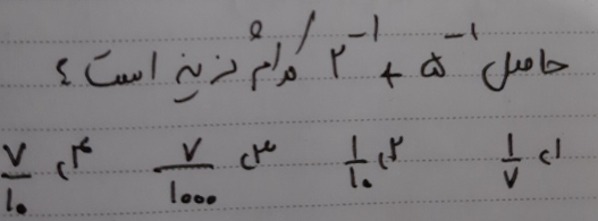 حاصل ۵⁻¹ + ۲⁻¹ کدام گزینه است؟
۱) ۱/۷ ۲) ۱/۱۰ ۳) ۷/۱۰۰۰ ۴) ۷/۱۰